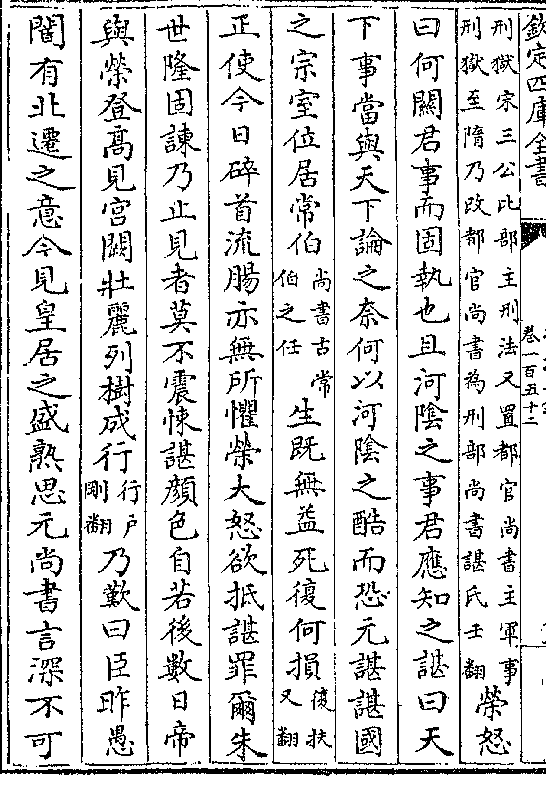 欽定四庫全書
卷一百五十二
刑獄宋三公比部主刑法又置都官尚書主軍事
刑獄至隋乃改都官尚書為刑部尚書諶氏壬翻
榮怒
曰何關君事而固執也且河陰之事君應知之諶曰天
下事當與天下論之奈何以河陰之酷而恐元諶諶國
之宗室位居常伯
尚書古常
伯之任
生既無益死復何損
復扶
又翻
正使今日碎首流腸亦無所懼榮大怒欲抵諶罪爾朱
世隆固諫乃止見者莫不震悚諶顏色自若後數日帝
與榮登高見宮闕壯麗列樹成行
行戶
剛翻
乃歎曰臣昨愚
闇有北遷之意今見皇居之盛熟思元尚書言深不可